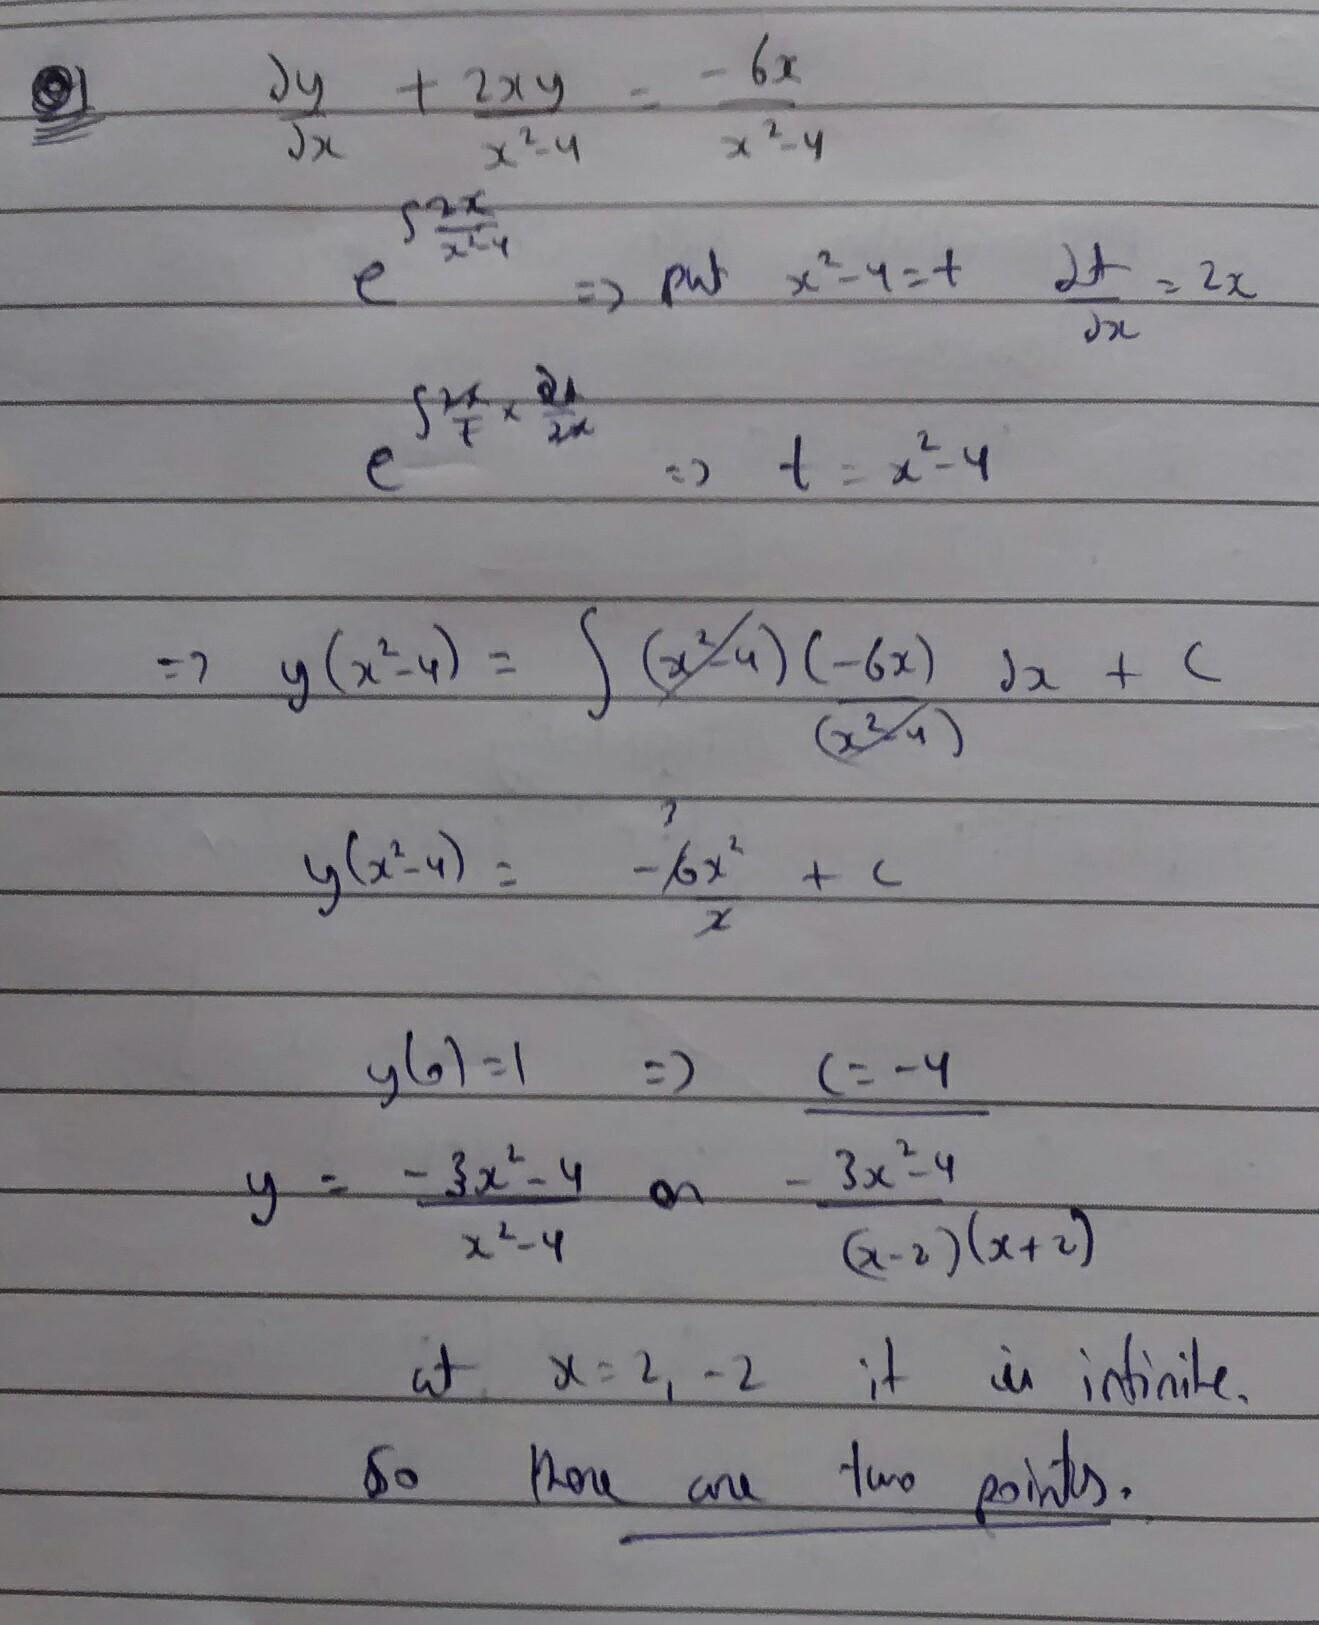 Q1 dy/dx + 2xy/x²-4 = -6x/x²-4
e^∫2x/x²-4 => put x²-4=t dt/dx = 2x
e^∫2x/t × dt/2x => t = x²-4
=> y(x²-4) = ∫ (x²-4)(-6x)/(x²-4) dx + C
y(x²-4) = -6x²/x + C
y(0)=1 => C=-4
y = -3x²-4/x²-4 or -3x²-4/(x-2)(x+2)
at x=2,-2 it is infinite.
So there are two points.